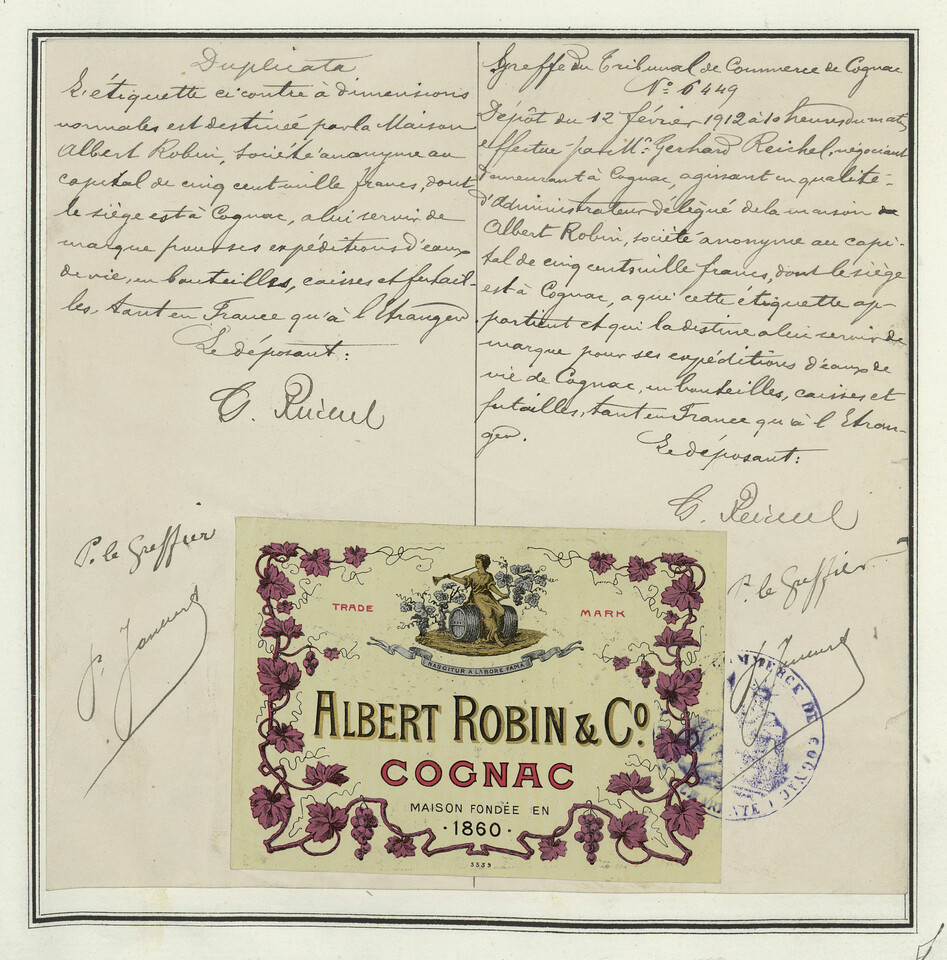 Duplicata
L'étiquette ci contre à dimensions
normales est destinée par la Maison
Albert Robin, société anonyme au
capital de cinq cent mille francs, dont
le siège est à Cognac, a lui servir de
marque pour ses expéditions d'eaux
de vie, en bouteilles, caisses et futail-
les, tant en France qu'à l'Etranger
Le déposant:
G. Reichel
P. le Greffier
Greffe du Tribunal de Commerce de Cognac
No. 6449
Dépôt du 12 février 1912 à 10 heures du matin
effectué par Mr. Gerhard Reichel, négociant
demeurant à Cognac, agissant en qualité
d'Administrateur délégué de la maison
Albert Robin, société anonyme au capi-
tal de cinq cent mille francs, dont le siège
est à Cognac, a qui cette étiquette ap-
partient et qui la destine a lui servir de
marque pour ses expéditions d'eaux de
vie de Cognac, en bouteilles, caisses et
futailles, tant en France qu'à l'Etran-
ger.
Le déposant:
G. Reichel
P. le Greffier
TRADE MARK
NASCITUR A LABORE FAMA
ALBERT ROBIN & Co.
COGNAC
MAISON FONDÉE EN
·1860·
3539
COMMERCE DE COGNAC